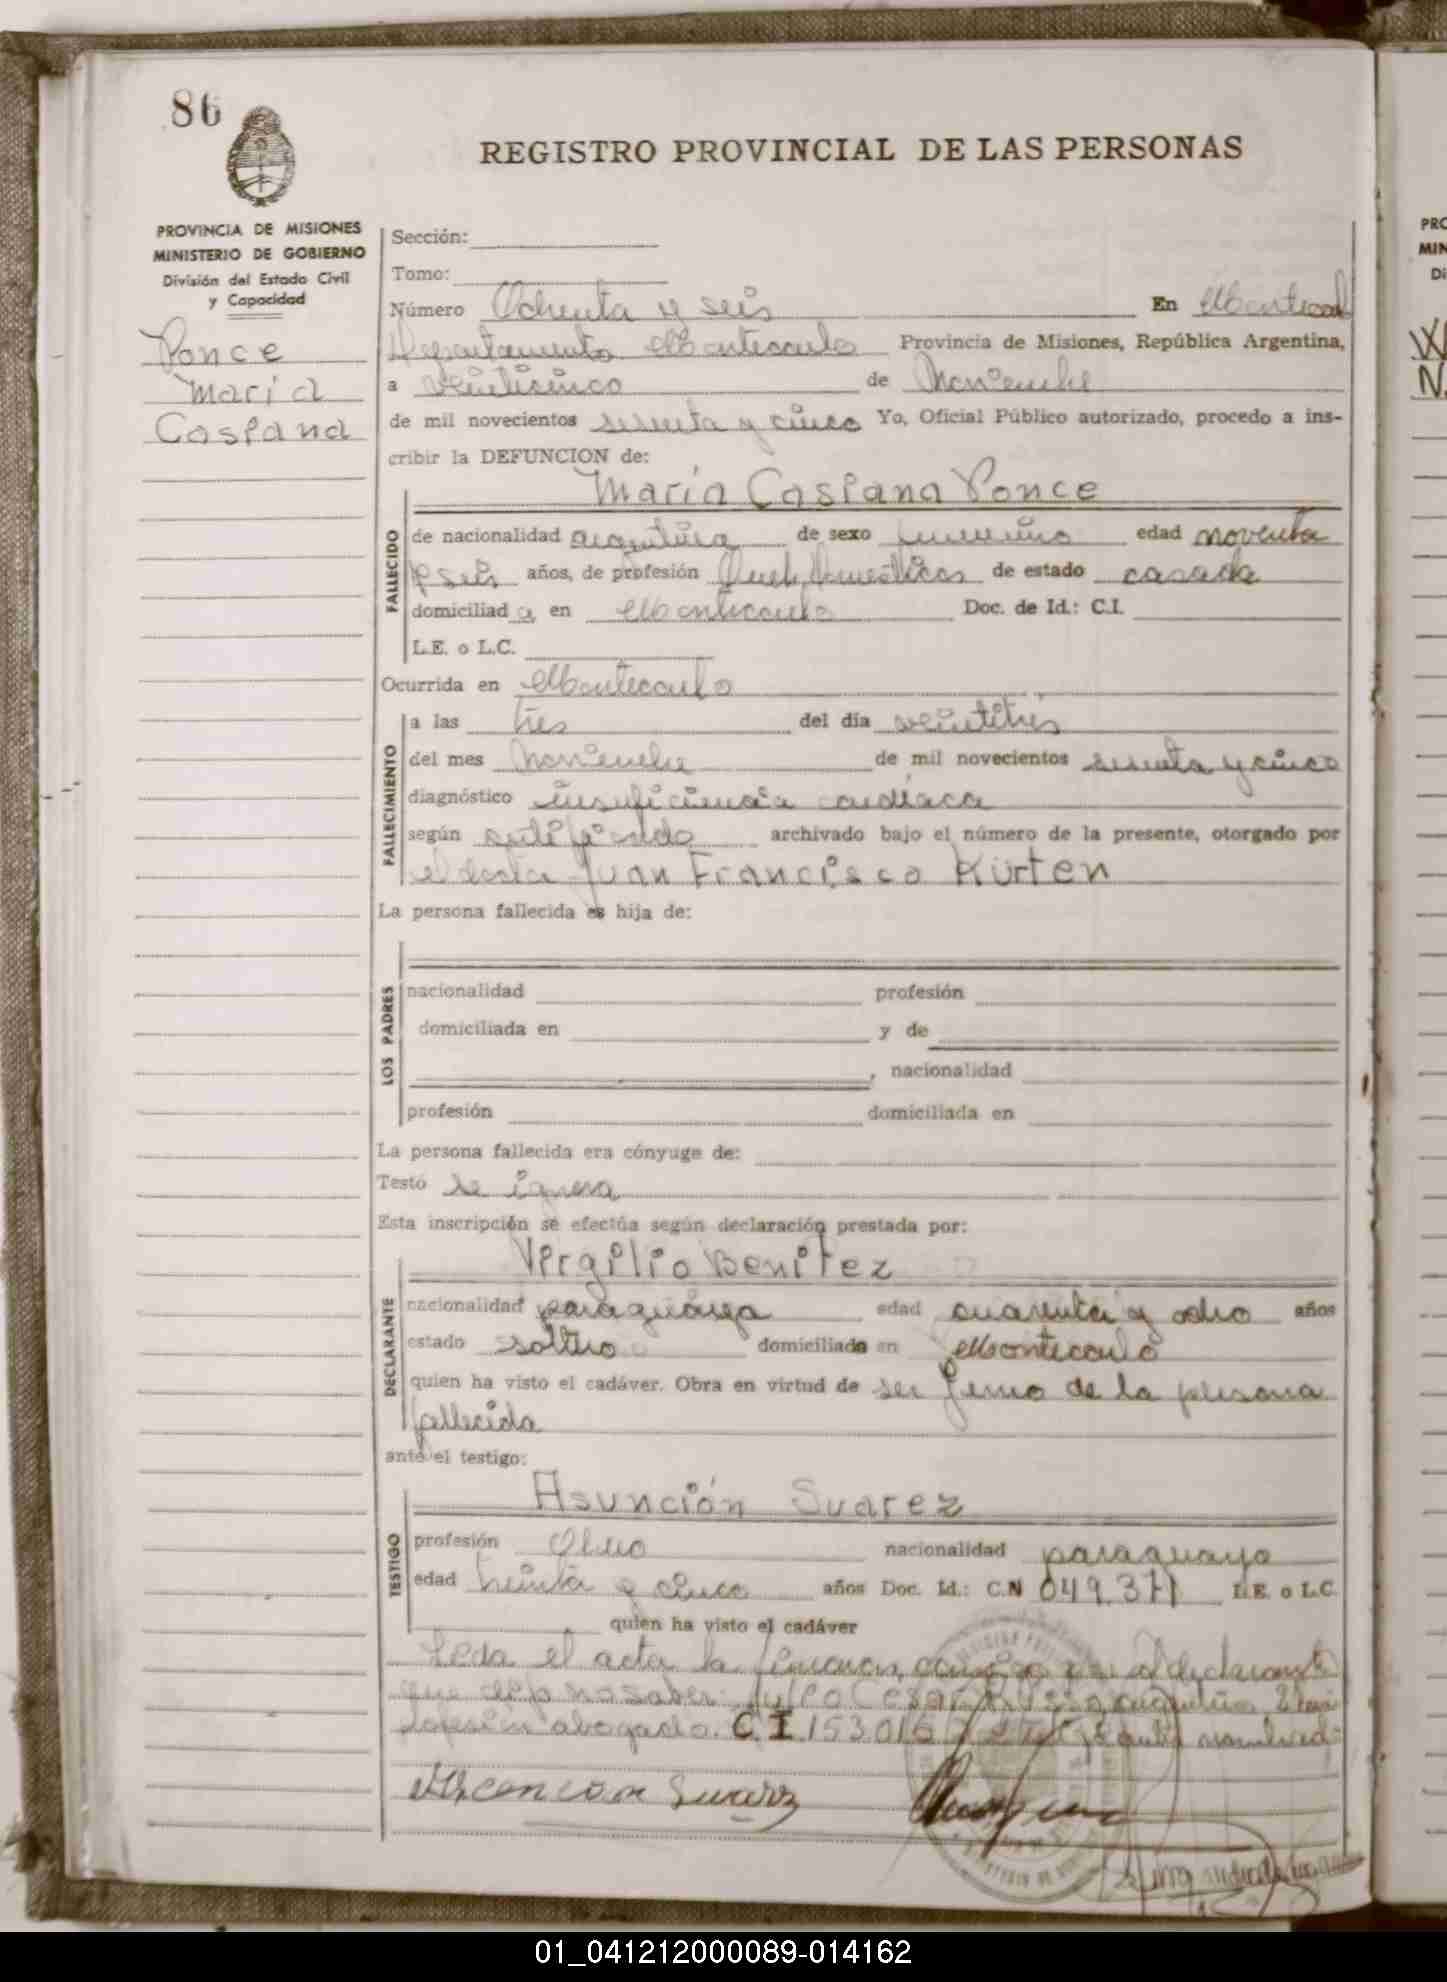 86
REGISTRO PROVINCIAL DE LAS PERSONAS
PROVINCIA DE MISIONES
MINISTERIO DE GOBIERNO
División del Estado Civil
y Capacidad
Ponce
María
Casiana
Sección:
Tomo:
Número Ochenta y seis En Montecarl
Departamento Montecarlo Provincia de Misiones, República Argentina,
a veinticinco de Noviembre
de mil novecientos sesenta y cinco Yo, Oficial Público autorizado, procedo a ins-
cribir la DEFUNCION de:
María Casiana Ponce
FALLECIDO
de nacionalidad argentina de sexo femenino edad noventa
y seis años, de profesión Queh. Domésticos de estado casada
domiciliad a en Montecarlo Doc. de Id.: C.I.
L.E. o L.C.
Ocurrida en Montecarlo
FALLECIMIENTO
a las tres del día veintitrés
del mes Noviembre de mil novecientos sesenta y cinco
diagnóstico insuficiencia cardíaca
según certificado archivado bajo el número de la presente, otorgado por
el doctor Juan Francisco Kürten
La persona fallecida es hija de:
LOS PADRES
nacionalidad profesión
domiciliada en y de
, nacionalidad
profesión domiciliada en
La persona fallecida era cónyuge de:
Testó se ignora
Esta inscripción se efectúa según declaración prestada por:
Virgilio Benitez
DECLARANTE
nacionalidad paraguaya edad cuarenta y ocho años
estado soltero domiciliado en Montecarlo
quien ha visto el cadáver. Obra en virtud de ser yerno de la persona
fallecida
ante el testigo:
Asunción Suarez
TESTIGO
profesión Obrero nacionalidad paraguayo
edad treinta y cinco años Doc. Id.: C.N 049.371 L.E. o L.C.
quien ha visto el cadáver
Leda el acta la firman conmigo por el declarante
que dijo no saber: Julio Cesar argentino
profesión abogado. C.I. 153.016 y el testigo antes nombrado
Suarez
01_041212000089-014162
PRO
MIN
Di